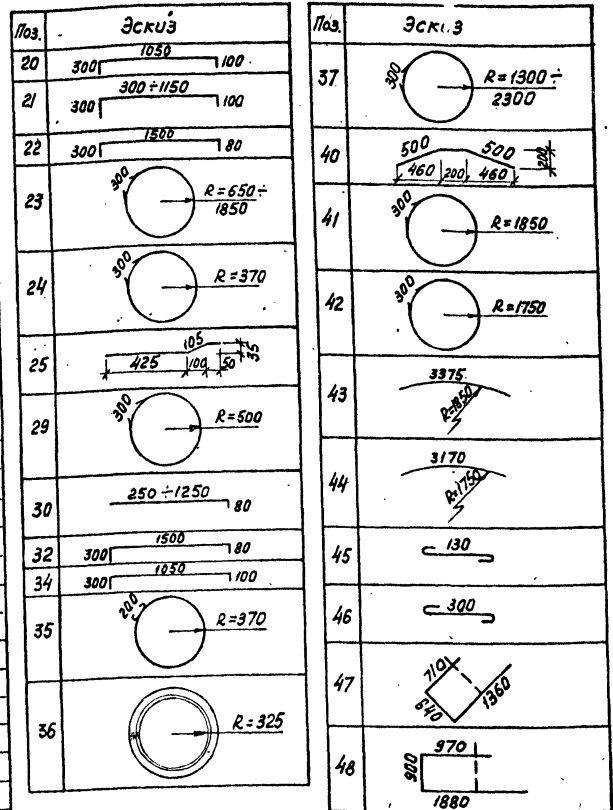 Поз. Эскиз
20 300 1050 100
21 300 300÷1150 100
22 300 1500 80
23 300 R=650÷ 1850
24 300 R=370
25 425 105 100 50 35
29 300 R=500
30 250÷1250 80
32 300 1500 80
34 300 1050 100
35 200 R=370
36 R=325
Поз. Эски3
37 300 R=1300÷ 2300
40 500 500 460 200 460 200
41 300 R=1850
42 300 R=1750
43 3375 R=1850
44 3170 R=1750
45 130
46 300
47 710 640 1360
48 900 970 1880